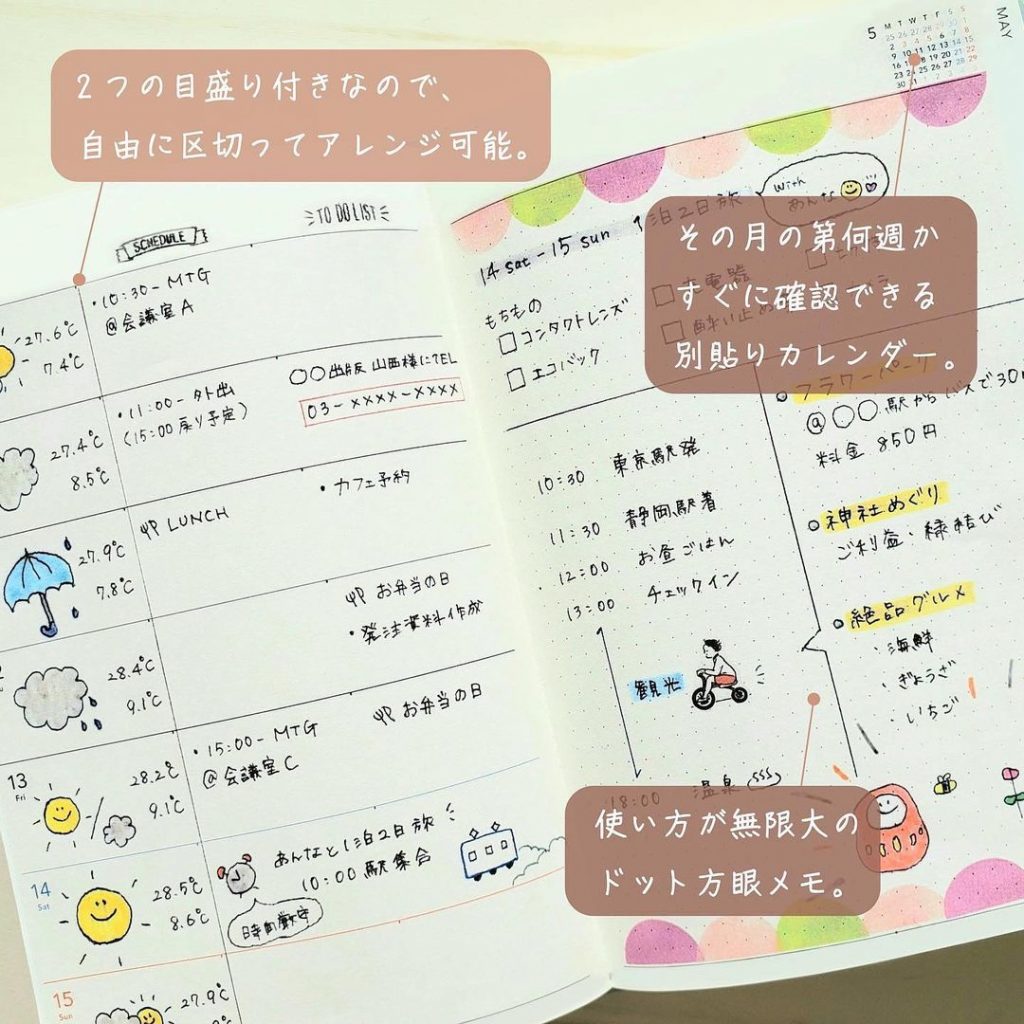 2つの目盛り付きなので、
自由に区切ってアレンジ可能。
SCHEDULE
TO DO LIST
27.6℃
7.4℃
・10:30- MTG
@会議室A
27.4℃
8.5℃
・11:00- 外出
(15:00 戻り予定)
○○出版 山西様にTEL
03-××××-××××
27.9℃
7.8℃
LUNCH
・カフェ予約
28.4℃
9.1℃
お弁当の日
・発注資料作成
13
Fri
28.2℃
9.1℃
・15:00- MTG
@会議室C
お弁当の日
14
Sat
28.5℃
8.6℃
あんなと1泊2日旅
10:00 駅集合
時間厳守
15
Sun
27.9℃
5
M T W T F S S
MAY
その月の第何週か
すぐに確認できる
別貼りカレンダー。
14 sat - 15 sun
1泊2日旅
with
あんな
もちもの
コンタクトレンズ
エコバック
充電器
酔い止め
10:30 東京駅発
11:30 静岡駅着
12:00 お昼ごはん
13:00 チェックイン
観光
18:00 温泉
フラワーパーク
@○○駅からバスで30
料金 850円
神社めぐり
ご利益:縁結び
絶品グルメ
・海鮮
・ぎょうざ
・いちご
使い方が無限大の
ドット方眼メモ。